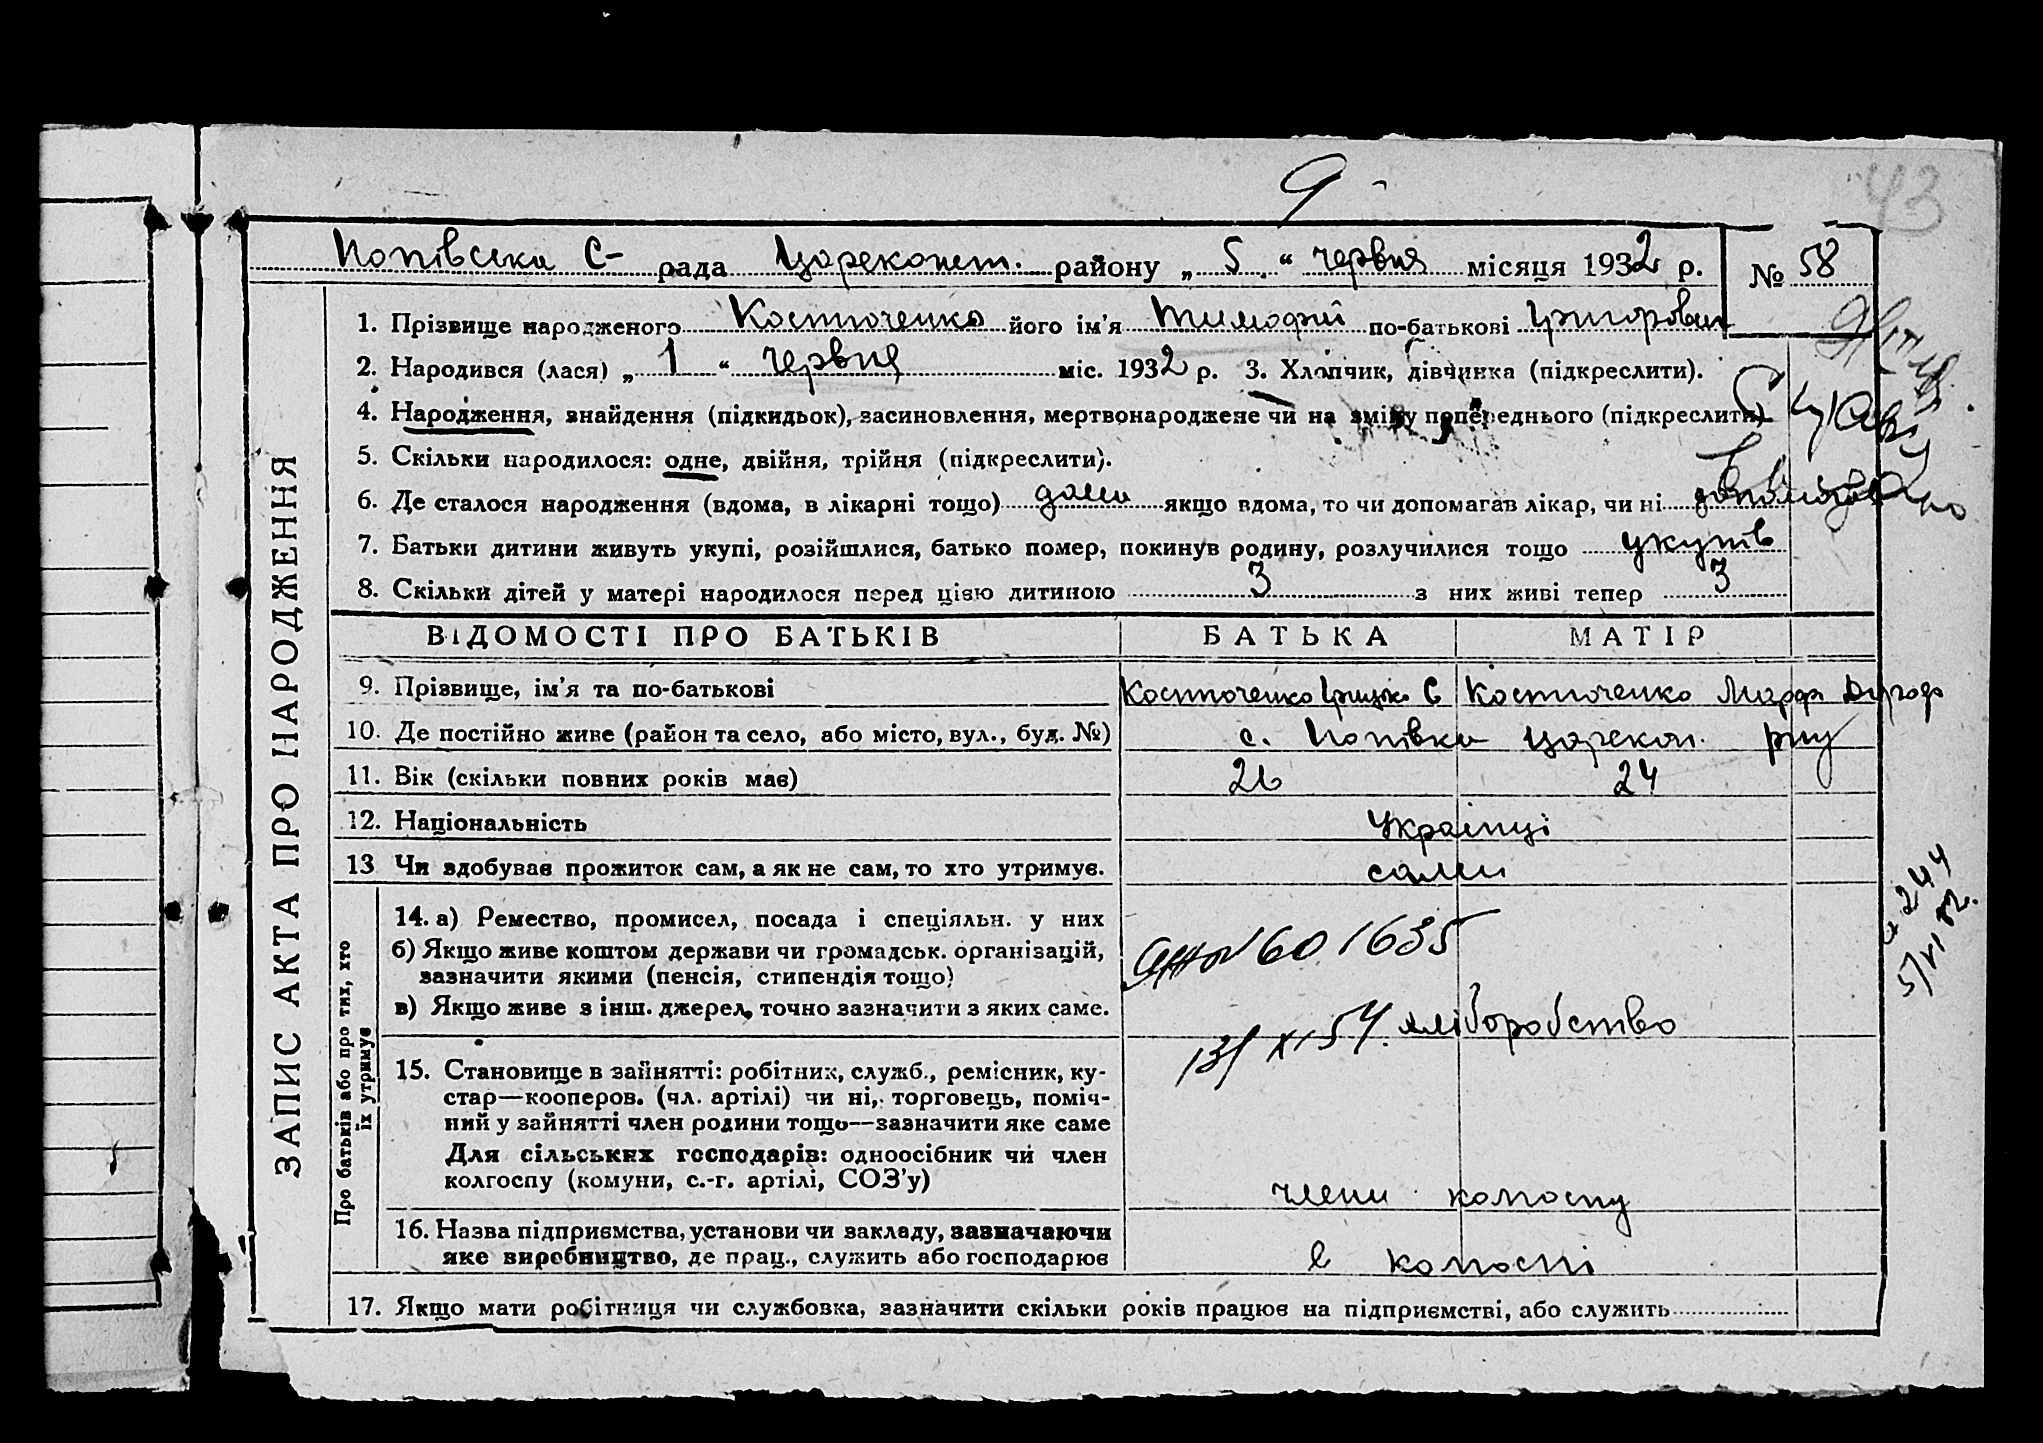 9
43
Попівська С- рада Цареконст. району „ 5 “ червня місяця 1932 р.
№ 58
1. Прізвище народженого Костюченко його ім’я Тимофій по-батькові Григорович
2. Народився (лася) „ 1 “ червня міс. 1932 р. 3. Хлопчик, дівчинка (підкреслити).
4. Народження, знайдення (підкидьок), засиновлення, мертвонароджене чи на зміну попереднього (підкреслити)
5. Скільки народилося: одне, двійня, трійня (підкреслити).
6. Де сталося народження (вдома, в лікарні тощо) дома якщо вдома, то чи допомагав лікар, чи ні
7. Батьки дитини живуть укупі, розійшлися, батько помер, покинув родину, розлучилися тощо укупів
8. Скільки дітей у матері народилося перед цією дитиною 3 з них живі тепер 3
ЗАПИС АКТА ПРО НАРОДЖЕННЯ
ВІДОМОСТІ ПРО БАТЬКІВ БАТЬКА МАТІР
9. Прізвище, ім’я та по-батькові Костюченко Грицько С Костюченко Марфа
10. Де постійно живе (район та село, або місто, вул., буд. №) с. Попівка Царекон. р-ну
11. Вік (скільки повних років має) 26 24
12. Національність Українці
13 Чи здобуває прожиток сам, а як не сам, то хто утримує. сами
Про батьків або про тих, хто
їх утримує
14. а) Ремество, промисел, посада і спеціяльн. у них
б) Якщо живе коштом держави чи громадськ. організацій,
зазначити якими (пенсія, стипендія тощо)
в) Якщо живе з інш. джерел, точно зазначити з яких саме.
601635
13/XI 54.
хліборобство
15. Становище в зайнятті: робітник, служб., ремісник, ку-
стар—кооперов. (чл. артілі) чи ні, торговець, поміч-
ний у зайнятті член родини тощо—зазначити яке саме
Для сільських господарів: одноосібник чи член
колгоспу (комуни, с.-г. артілі, СОЗ’у)
члени колгоспу
16. Назва підприємства, установи чи закладу, зазначаючи
яке виробництво, де прац., служить або господарює
в колгоспі
17. Якщо мати робітниця чи службовка, зазначити скільки років працює на підприємстві, або служить
244
5/VI 82.